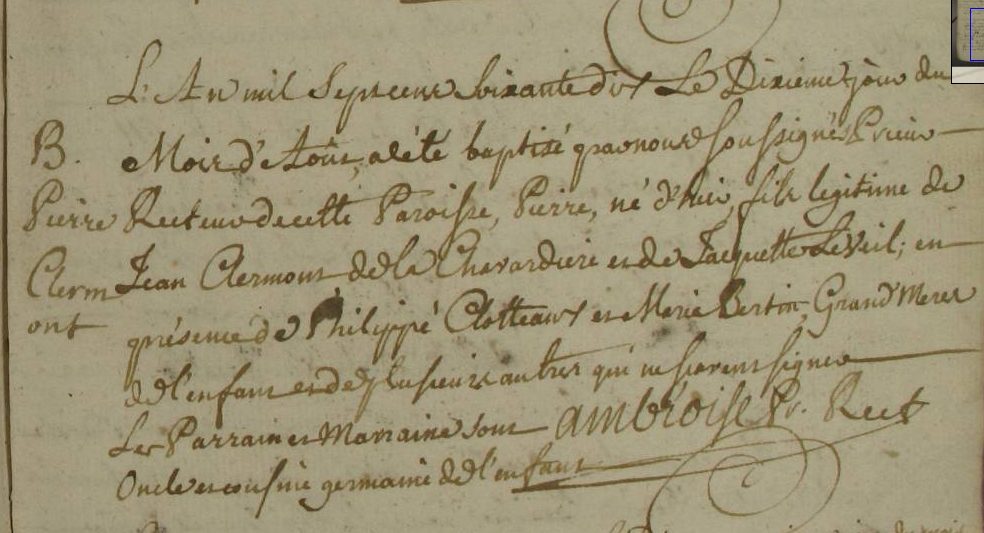 L'An mil Septcens Soixante dix Le Dixieme jour du
B. Mois d'Aout, a été baptisé par nous Soussigné Prieur
Pierre Recteur de cette Paroisse, Pierre, né d'hier, fils legitime de
Clerm Jean Clermont de la Chavardiere et de Jacquette Leveil; en
ont présence de Philippe Clotteaux et Marie Bertin, Grand Meres
de l'enfant et de plusieurs autres qui ne scavent signer
Les Parrain et Marraine sont Ambroise Pr. Rect
Oncle et cousine germaine de l'enfant